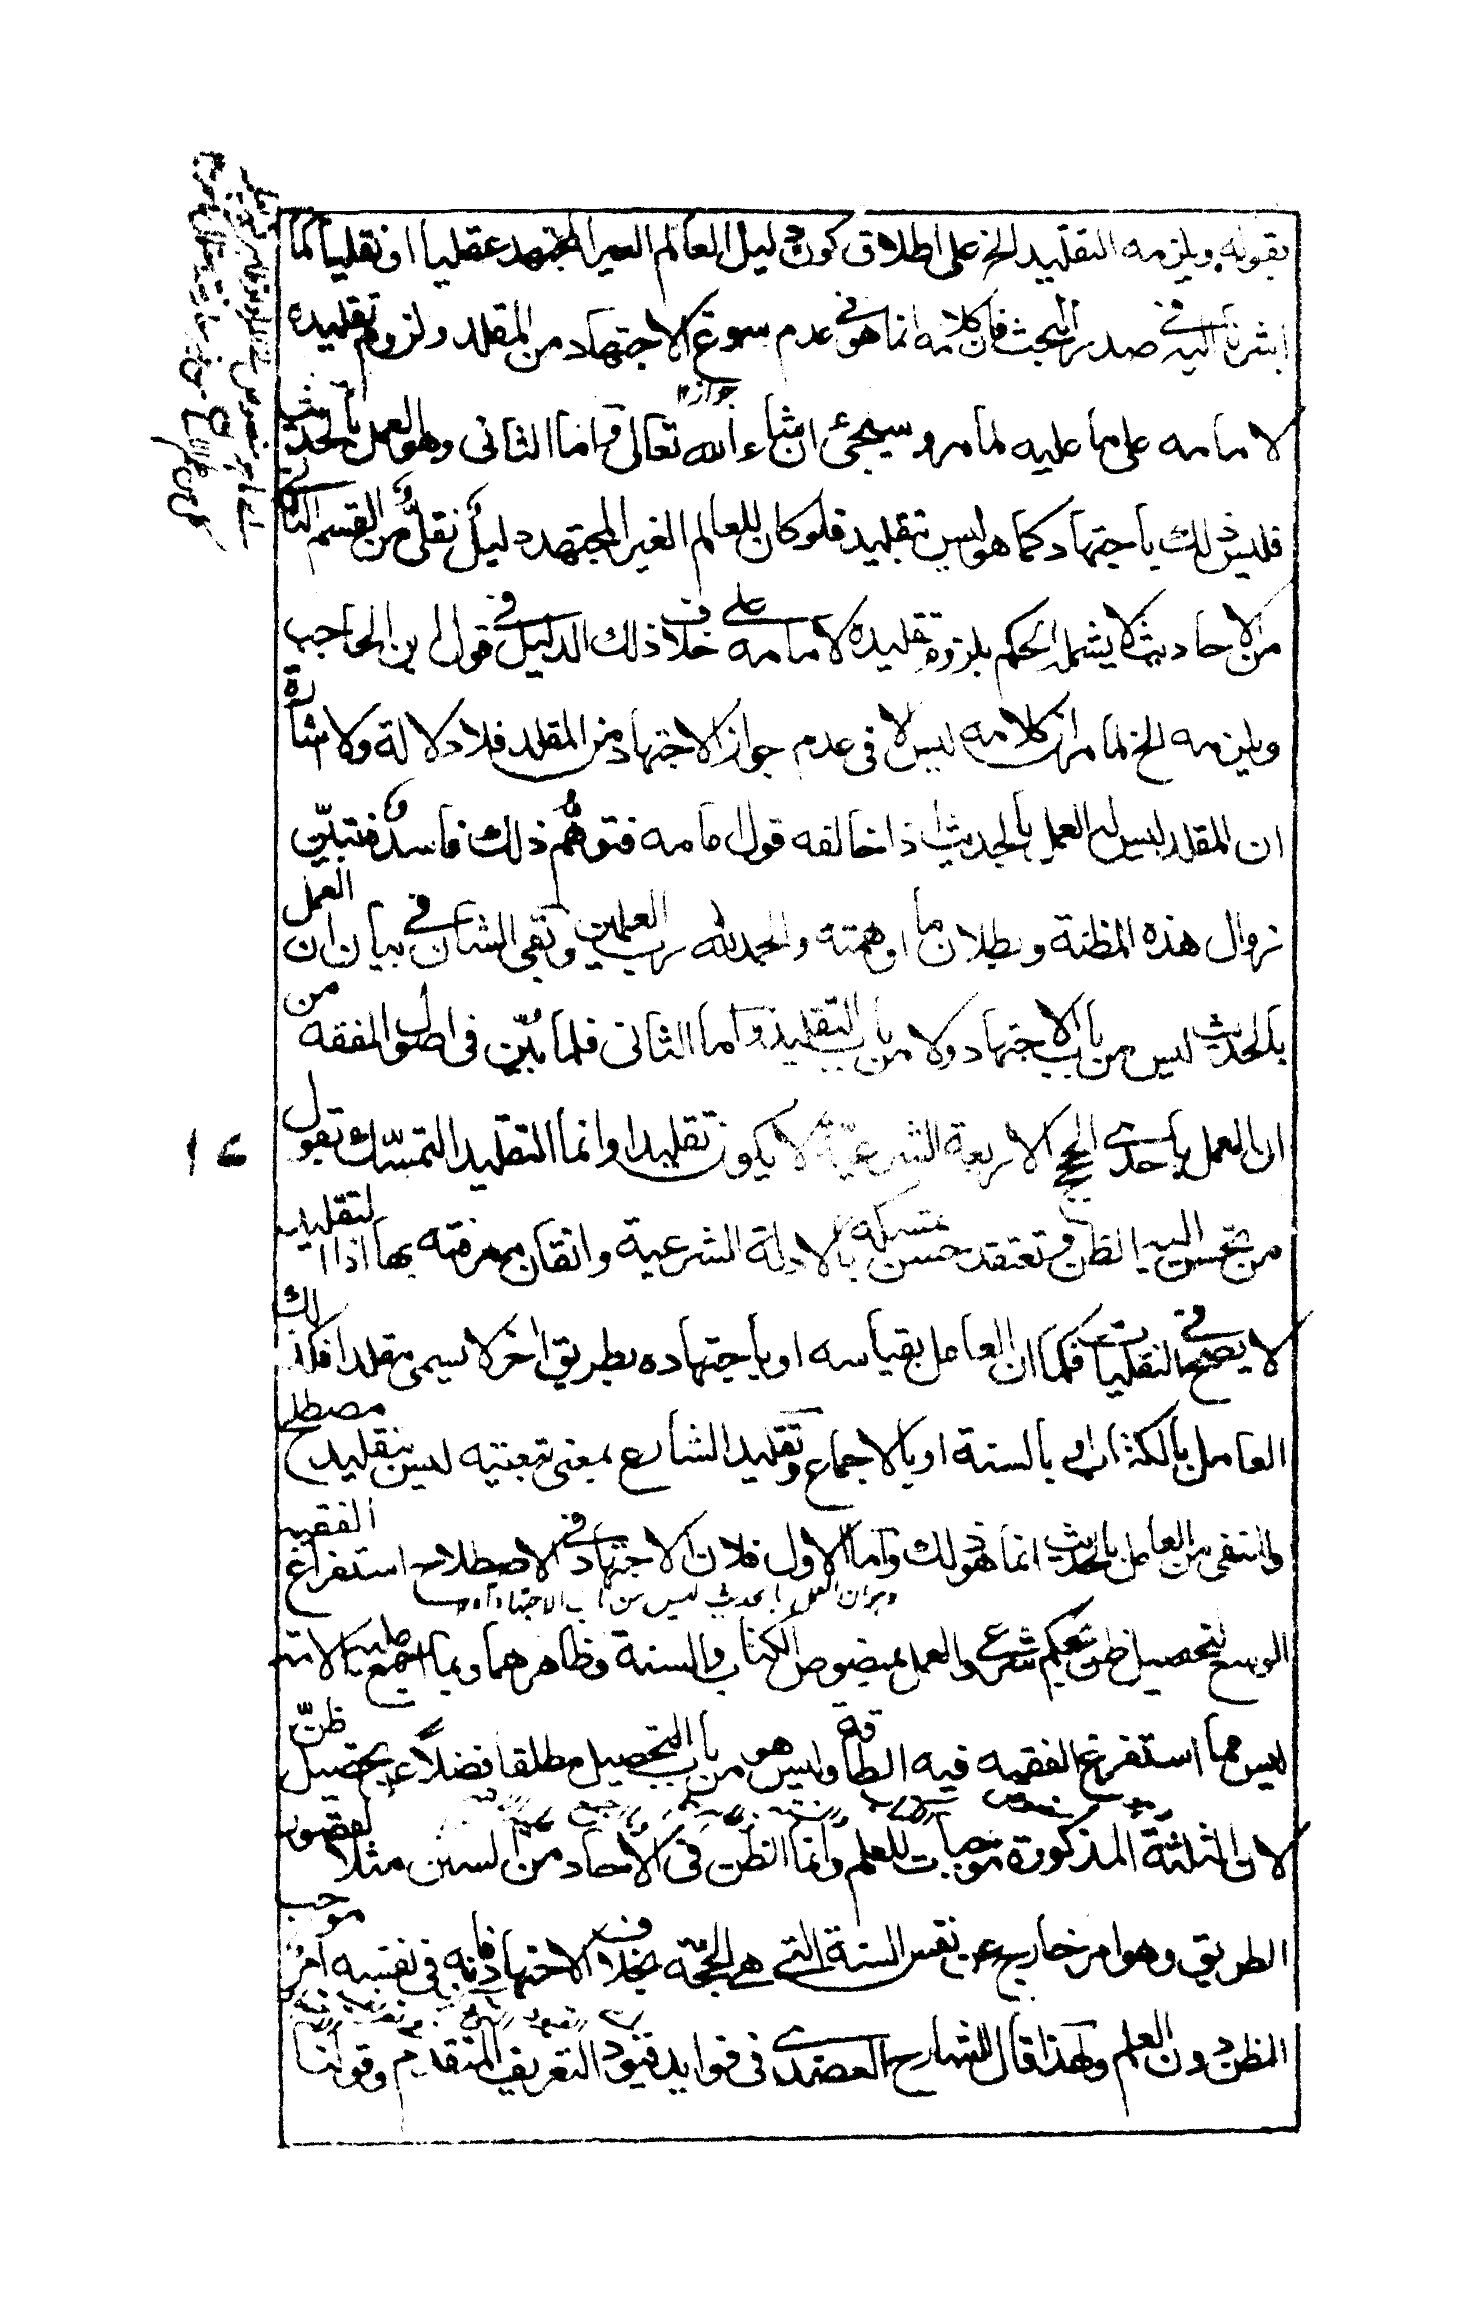 بقوله ويلزمه التقليد الخ على اطلاق كون دليل العالم الغير المجتهد عقليا او نقليا كما
اشرنا اليه في صدر المبحث فان كلامه انما هو في عدم سوغ الاجتهاد من المقلد ولزوم تقليده
لامامه على ما عليه لما مر وسيجئ ان شاء الله تعالى واما الثاني وهو العمل بالحديث
فليس ذلك باجتهاد كما هو ليس بتقليد فلو كان للعالم الغير المجتهد دليل نقلي من القسم الثاني
من الاحاديث لا يشمل الحكم بلزوم تقليده لامامه على خلاف ذلك الدليل في قول ابن الحاجب
ويلزمه الخ لما مر ان كلامه ليس الا في عدم جواز الاجتهاد من المقلد فلا دلالة ولا اشارة
ان المقلد ليس له العمل بالحديث اذا خالفه قول امامه فتوهم ذلك فاسد فتبين
زوال هذه المظنة وبطلان ما اوهمته والحمد لله رب العلمين وبقي الشان في بيان ان العمل
بالحديث ليس من باب الاجتهاد ولا من باب التقليد واما الثاني فلما بين في اصول الفقه من
ان العمل باحدى الحجج الاربعة الشرعية لا يكون تقليدا وانما التقليد التمسك بقول
من تحسن اليه الظن وتعتقد حسن تمسكه بالادلة الشرعية واتقان معرفته بها اذ التقليد
لا يصح في النقليات فكما ان العامل بقياسه او باجتهاده بطريق اخر لا يسمى مقلدا فكذلك
العامل بالكتاب او بالسنة او بالاجماع وتقليد الشارع بمعنى تبعيته ليس بتقليد مصطلح
والمنفى من العامل بالحديث انما هو ذلك واما الاول فلان الاجتهاد في الاصطلاح استفراغ الفقيه
وهو ان العمل بالحديث ليس من باب الاجتهاد
الوسع لتحصيل ظن بحكم شرعي والعمل بنصوص الكتاب والسنة وظاهرهما وبما اجمع عليه الامة
ليس مما استفرغ الفقيه فيه الطاقة وليس هو من باب التحصيل مطلقا فضلا عن تحصيل ظن
لان الثلثة المذكورة موجبات للعلم وانما الظن في الاحاد من السنن مثلا لقصور
الطريق وهو امر خارج عن نفس السنة التي هي الحجة بخلاف الاجتهاد فانه في نفسه امر موجب
الظن دون العلم ولهذا قال الشارح العضدى في فوايد قيود التعريف المتقدم وقولنا